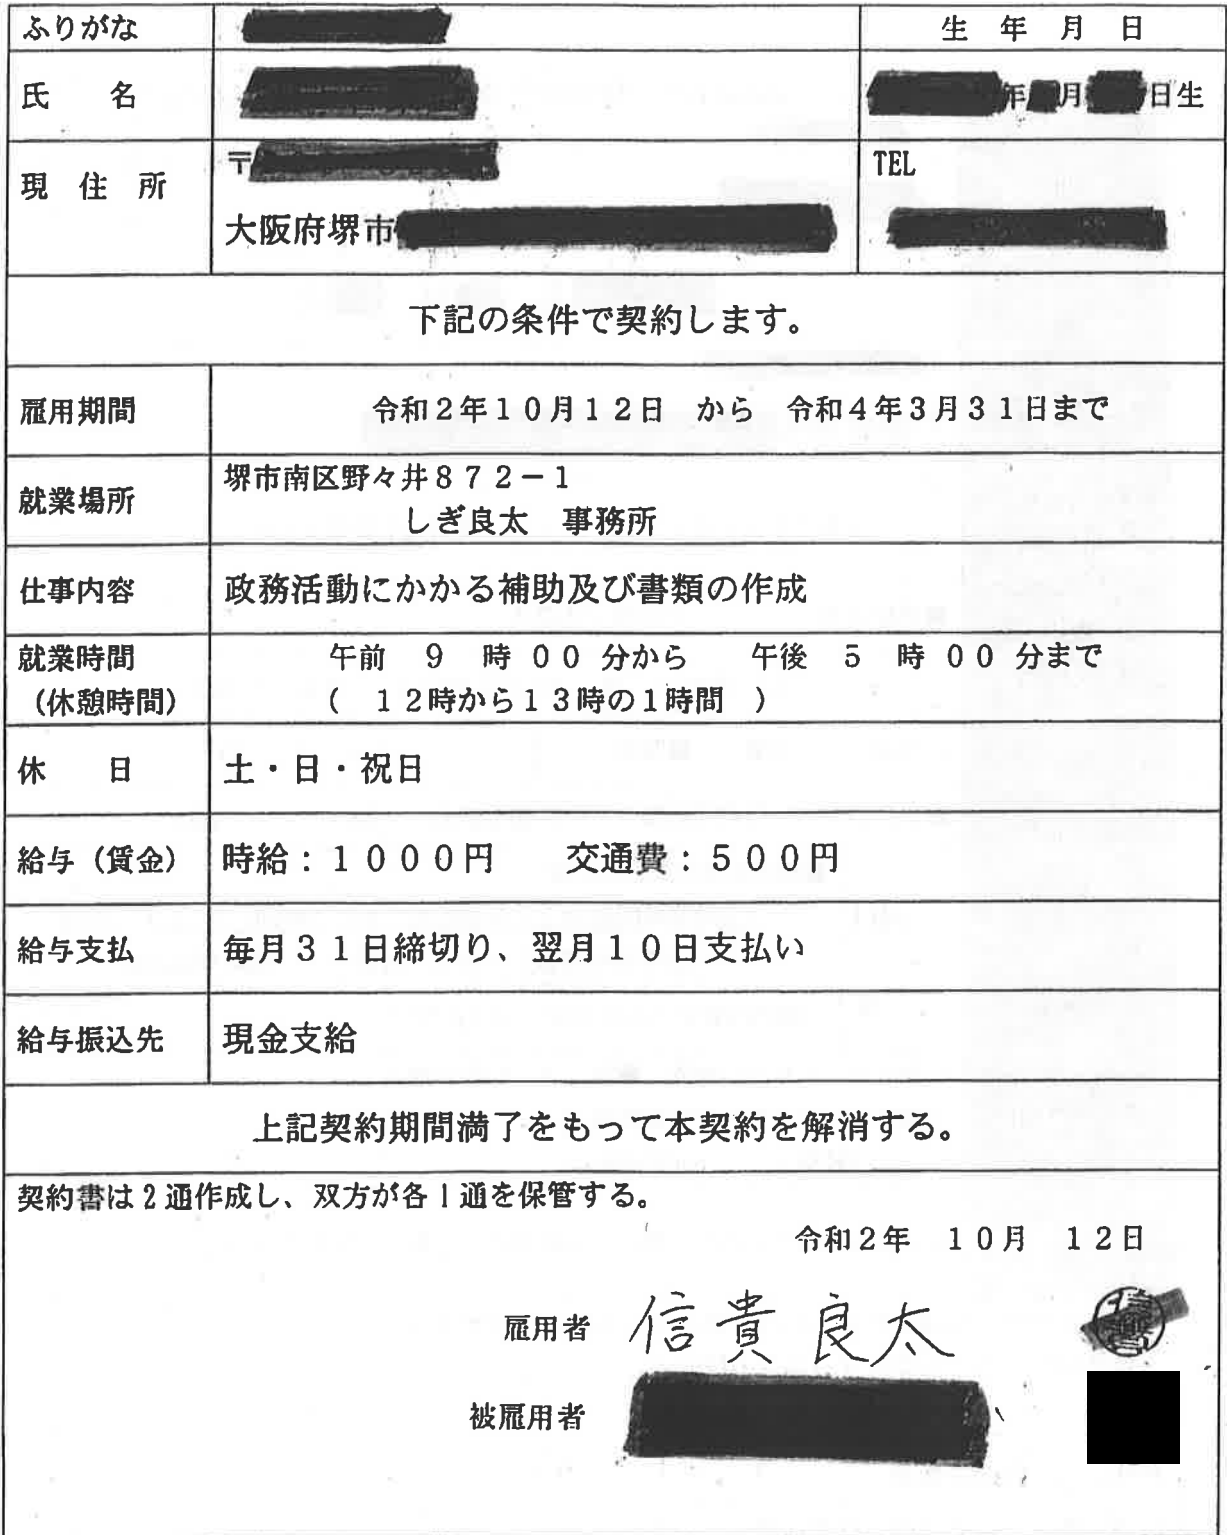 ふりがな
生 年 月 日
氏 名
年 月 日生
現 住 所
〒
TEL
大阪府堺市
下記の条件で契約します。
雇用期間
令和2年10月12日 から 令和4年3月31日まで
就業場所
堺市南区野々井872-1
しぎ良太 事務所
仕事内容
政務活動にかかる補助及び書類の作成
就業時間
(休憩時間)
午前 9 時 00 分から 午後 5 時 00 分まで
( 12時から13時の1時間 )
休 日
土・日・祝日
給与(賃金)
時給:1000円 交通費:500円
給与支払
毎月31日締切り、翌月10日支払い
給与振込先
現金支給
上記契約期間満了をもって本契約を解消する。
契約書は2通作成し、双方が各1通を保管する。
令和2年 10月 12日
雇用者 信貴良太
被雇用者